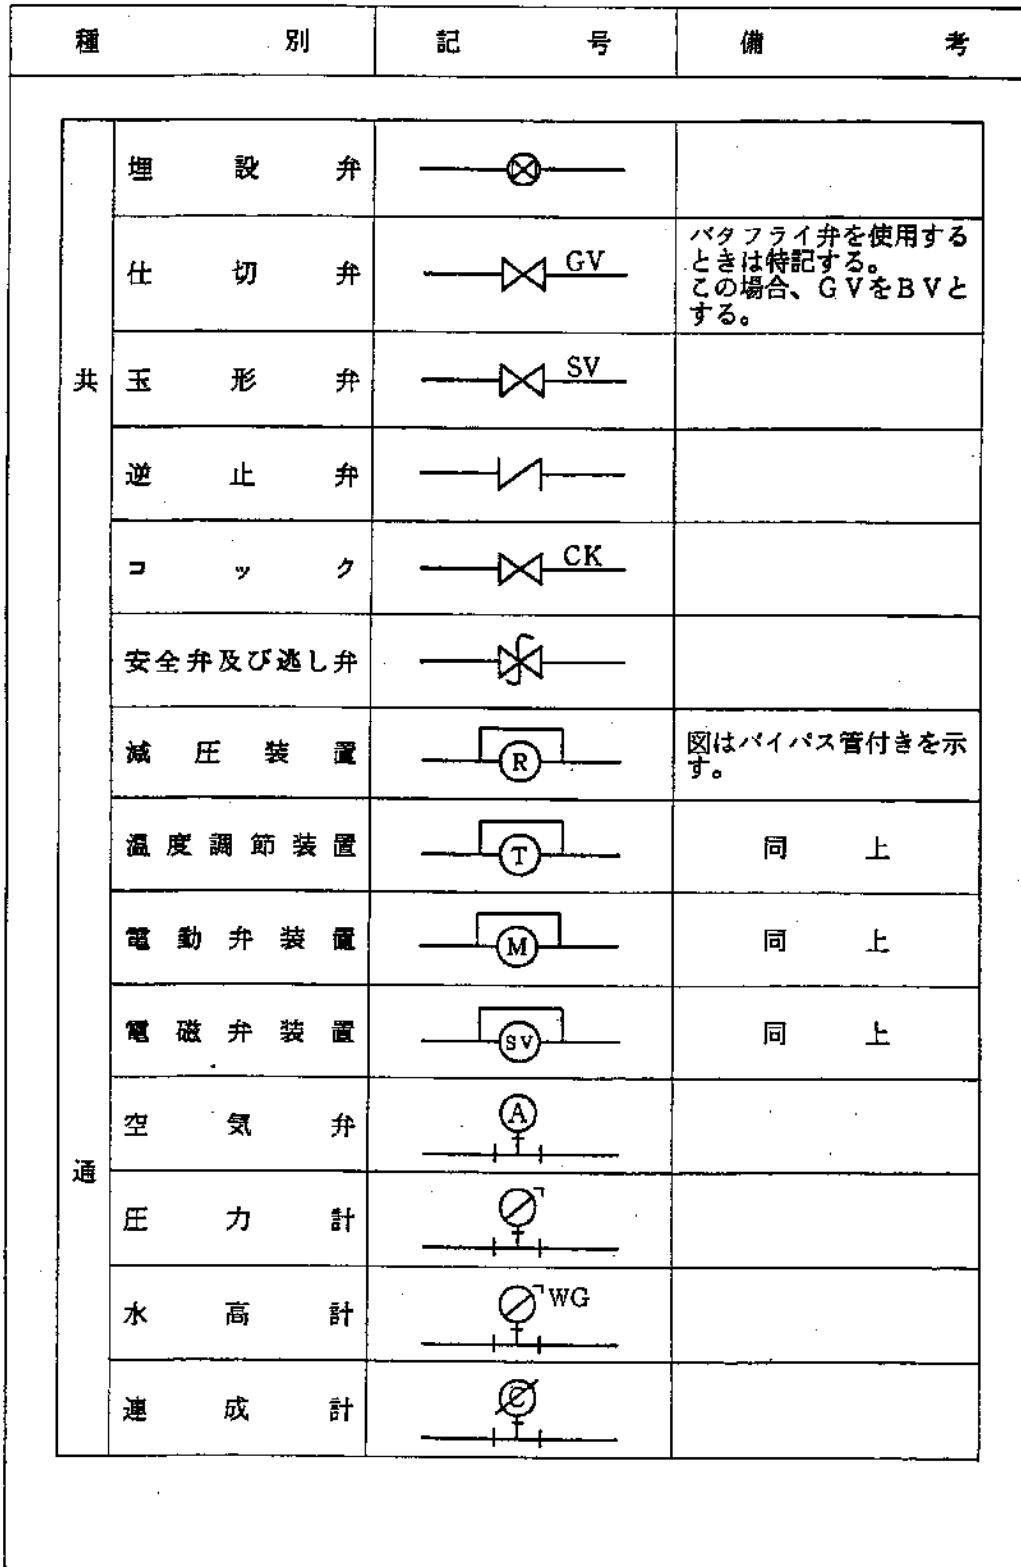 種別 記号 備考
共通
埋設弁
仕切弁 GV バタフライ弁を使用する
ときは特記する。
この場合、GVをBVと
する。
玉形弁 SV
逆止弁
コック CK
安全弁及び逃し弁
減圧装置 R 図はバイパス管付きを示
す。
温度調節装置 T 同上
電動弁装置 M 同上
電磁弁装置 SV 同上
空気弁 A
圧力計
水高計 WG
連成計 C